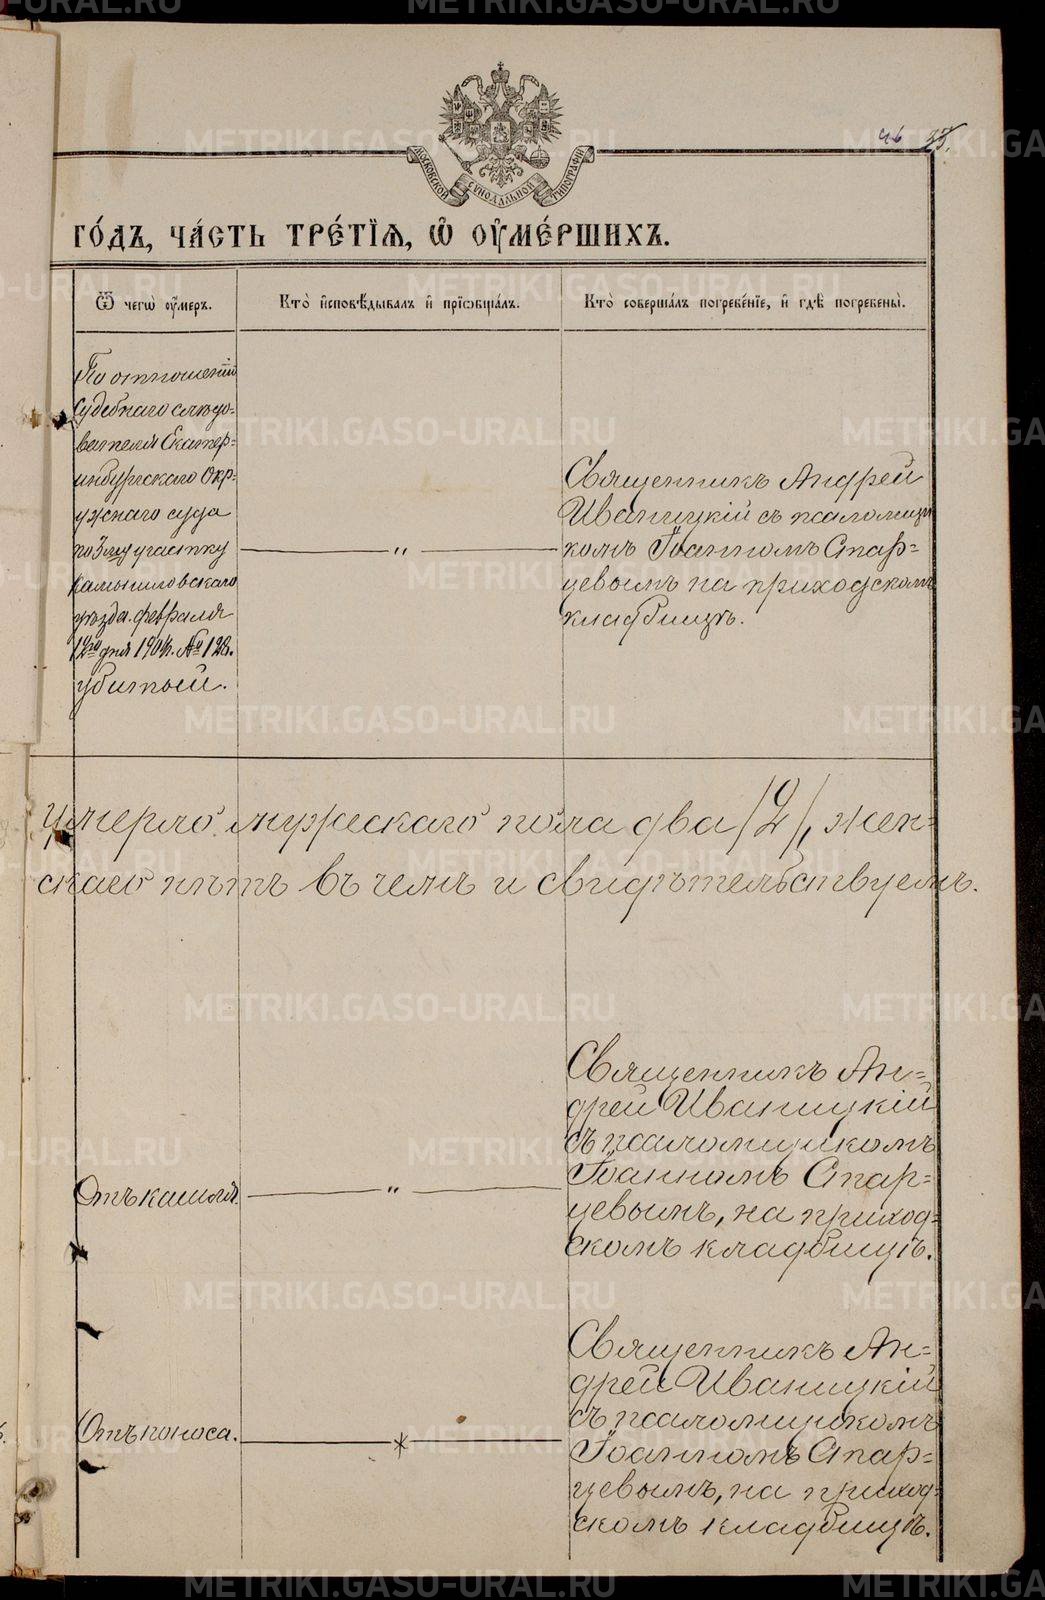 46 35.
МОСКОВСКОЙ СѴНОДАЛЬНОЙ ТИПОГРАФІИ
ГО́ДЪ, ЧА́СТЬ ТРЕ́ТЇѦ, Ѡ҆ ОУ҆МЕ́РШИХЪ.
Ѿ чегѡ̀ оу҆́меръ.
Кто̀ и҆сповѣ́дывалъ и҆ прїѡбща́лъ.
Кто̀ соверша́лъ погребе́нїе, и҆ гдѣ̀ погребены̀.
По отношенію
Судебнаго слѣдо-
вателя Екатер-
инбургскаго Окр-
ужнаго суда
по 3му участку
Камышловскаго
уѣзда. февраля
12го дня 1904г. № 128.
убитый.
"
Священникъ Андрей
Иваницкій съ псаломщи
комъ Іоанномъ Стар=
цевымъ на приходскомъ
кладбищѣ.
умерло мужескаго пола два /2/, жен=
скаго нѣтъ въ чемъ и свидѣтельствуемъ.
Отъ кашля.
"
Священникъ Ан=
дрей Иваницкій
съ псаломщикомъ
Іоанномъ Стар=
цевымъ, на приход=
скомъ кладбищѣ.
Отъ поноса.
Священникъ Ан=
дрей Иваницкій
съ псаломщикомъ
Іоанномъ Стар=
цевымъ, на приход=
скомъ кладбищѣ.
METRIKI.GASO-URAL.RU